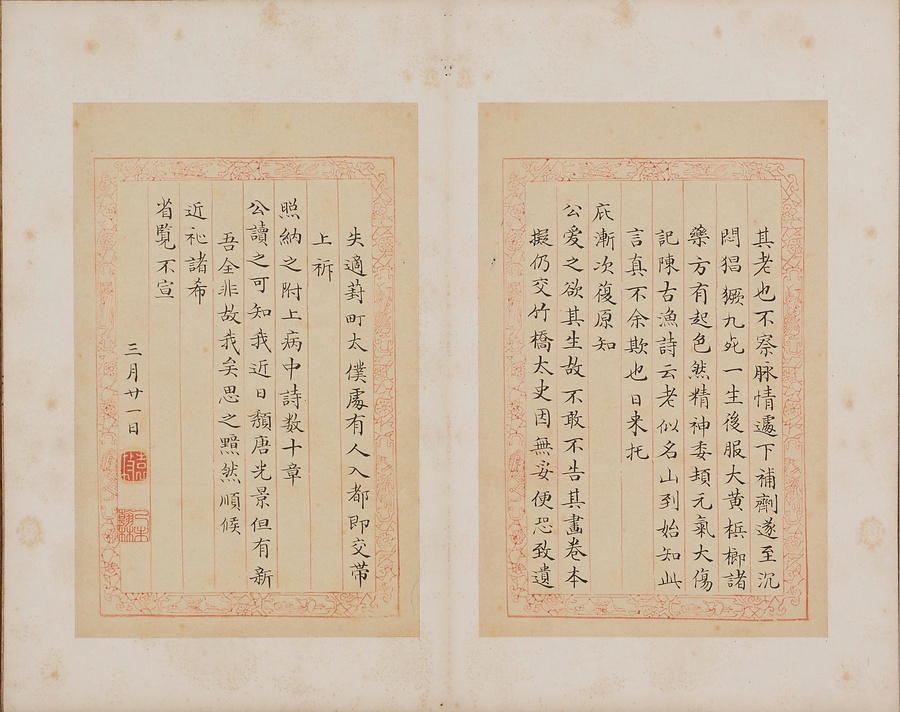 其老也不察脉情遽下補劑遂至沉
悶猖獗九死一生後服大黄檳榔諸
藥方有起色然精神委頓元氣大傷
記陳古漁詩云老似名山到始知此
言真不余欺也日来托
庇漸次復原知
公愛之欲其生故不敢不告其畫卷本
擬仍交竹橋太史因無妥便恐致遺
失適葑町太僕處有人入都即交带
上祈
照納之附上病中詩数十章
公讀之可知我近日頽唐光景但有新
吾全非故我矣思之黯然順候
近祉諸希
省覽不宣
三月廿一日